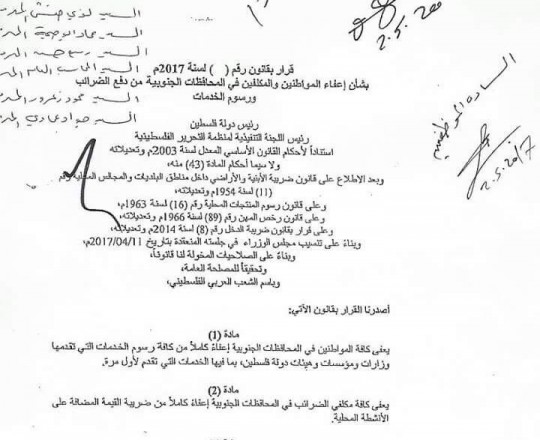 السيد لؤي حنتش المد
السيد
السيد
السيد
السيد محمود
السيد جواد
2.5.2017
السادة الموظفين
2.5.2017
قرار بقانون رقم (  ) لسنة 2017م
بشأن إعفاء المواطنين والمكلفين في المحافظات الجنوبية من دفع الضرائب
ورسوم الخدمات
رئيس دولة فلسطين
رئيس اللجنة التنفيذية لمنظمة التحرير الفلسطينية
استناداً لأحكام القانون الأساسي المعدل لسنة 2003م وتعديلاته
ولا سيما أحكام المادة (43) منه،
وبعد الاطلاع على قانون ضريبة الأبنية والأراضي داخل مناطق البلديات والمجالس المحلية رقم
(11) لسنة 1954م وتعديلاته،
وعلى قانون رسوم المنتجات المحلية رقم (16) لسنة 1963م،
وعلى قانون رخص المهن رقم (89) لسنة 1966م وتعديلاته،
وعلى قرار بقانون ضريبة الدخل رقم (8) لسنة 2014م وتعديلاته،
وبناءً على تنسيب مجلس الوزراء في جلسته المنعقدة بتاريخ 2017/04/11م،
وبناءً على الصلاحيات المخولة لنا قانوناً،
وتحقيقاً للمصلحة العامة،
وباسم الشعب العربي الفلسطيني،
أصدرنا القرار بقانون الآتي:
مادة (1)
يعفى كافة المواطنين في المحافظات الجنوبية إعفاءً كاملاً من كافة رسوم الخدمات التي تقدمها
وزارات ومؤسسات وهيئات دولة فلسطين، بما فيها الخدمات التي تقدم لأول مرة.
مادة (2)
يعفى كافة مكلفي الضرائب في المحافظات الجنوبية إعفاءً كاملاً من ضريبة القيمة المضافة على
الأنشطة المحلية.